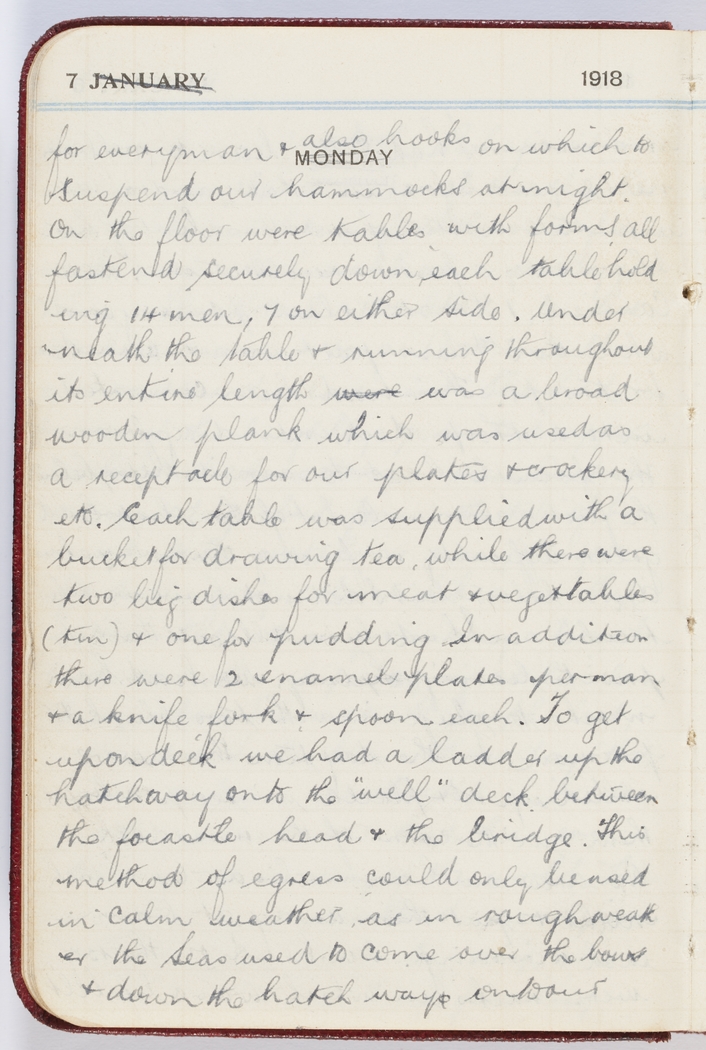 7 JANUARY 1918
MONDAY
for everyman & also hooks on which to
suspend our hammocks at night.
On the floor were tables with forms, all
fastend securely down, each table hold
ing 14 men, 7 on either side. Under
neath the table & running throughout
its entire length were was a broad
wooden plank which was used as
a receptacle for our plates & crockery
etc. Each table was supplied with a
bucket for drawing tea, while there were
two big dishes for meat & vegetables
(tin) & one for pudding In addition
there were 2 enamel plates per man
& a knife fork & spoon each. To get
upon deck we had a ladder up the
hatchway onto the "well" deck between
the focastle head & the bridge. This
method of egress could only be used
in calm weather, as in rough weath
er the seas used to come over the bows
& down the hatch way onto our